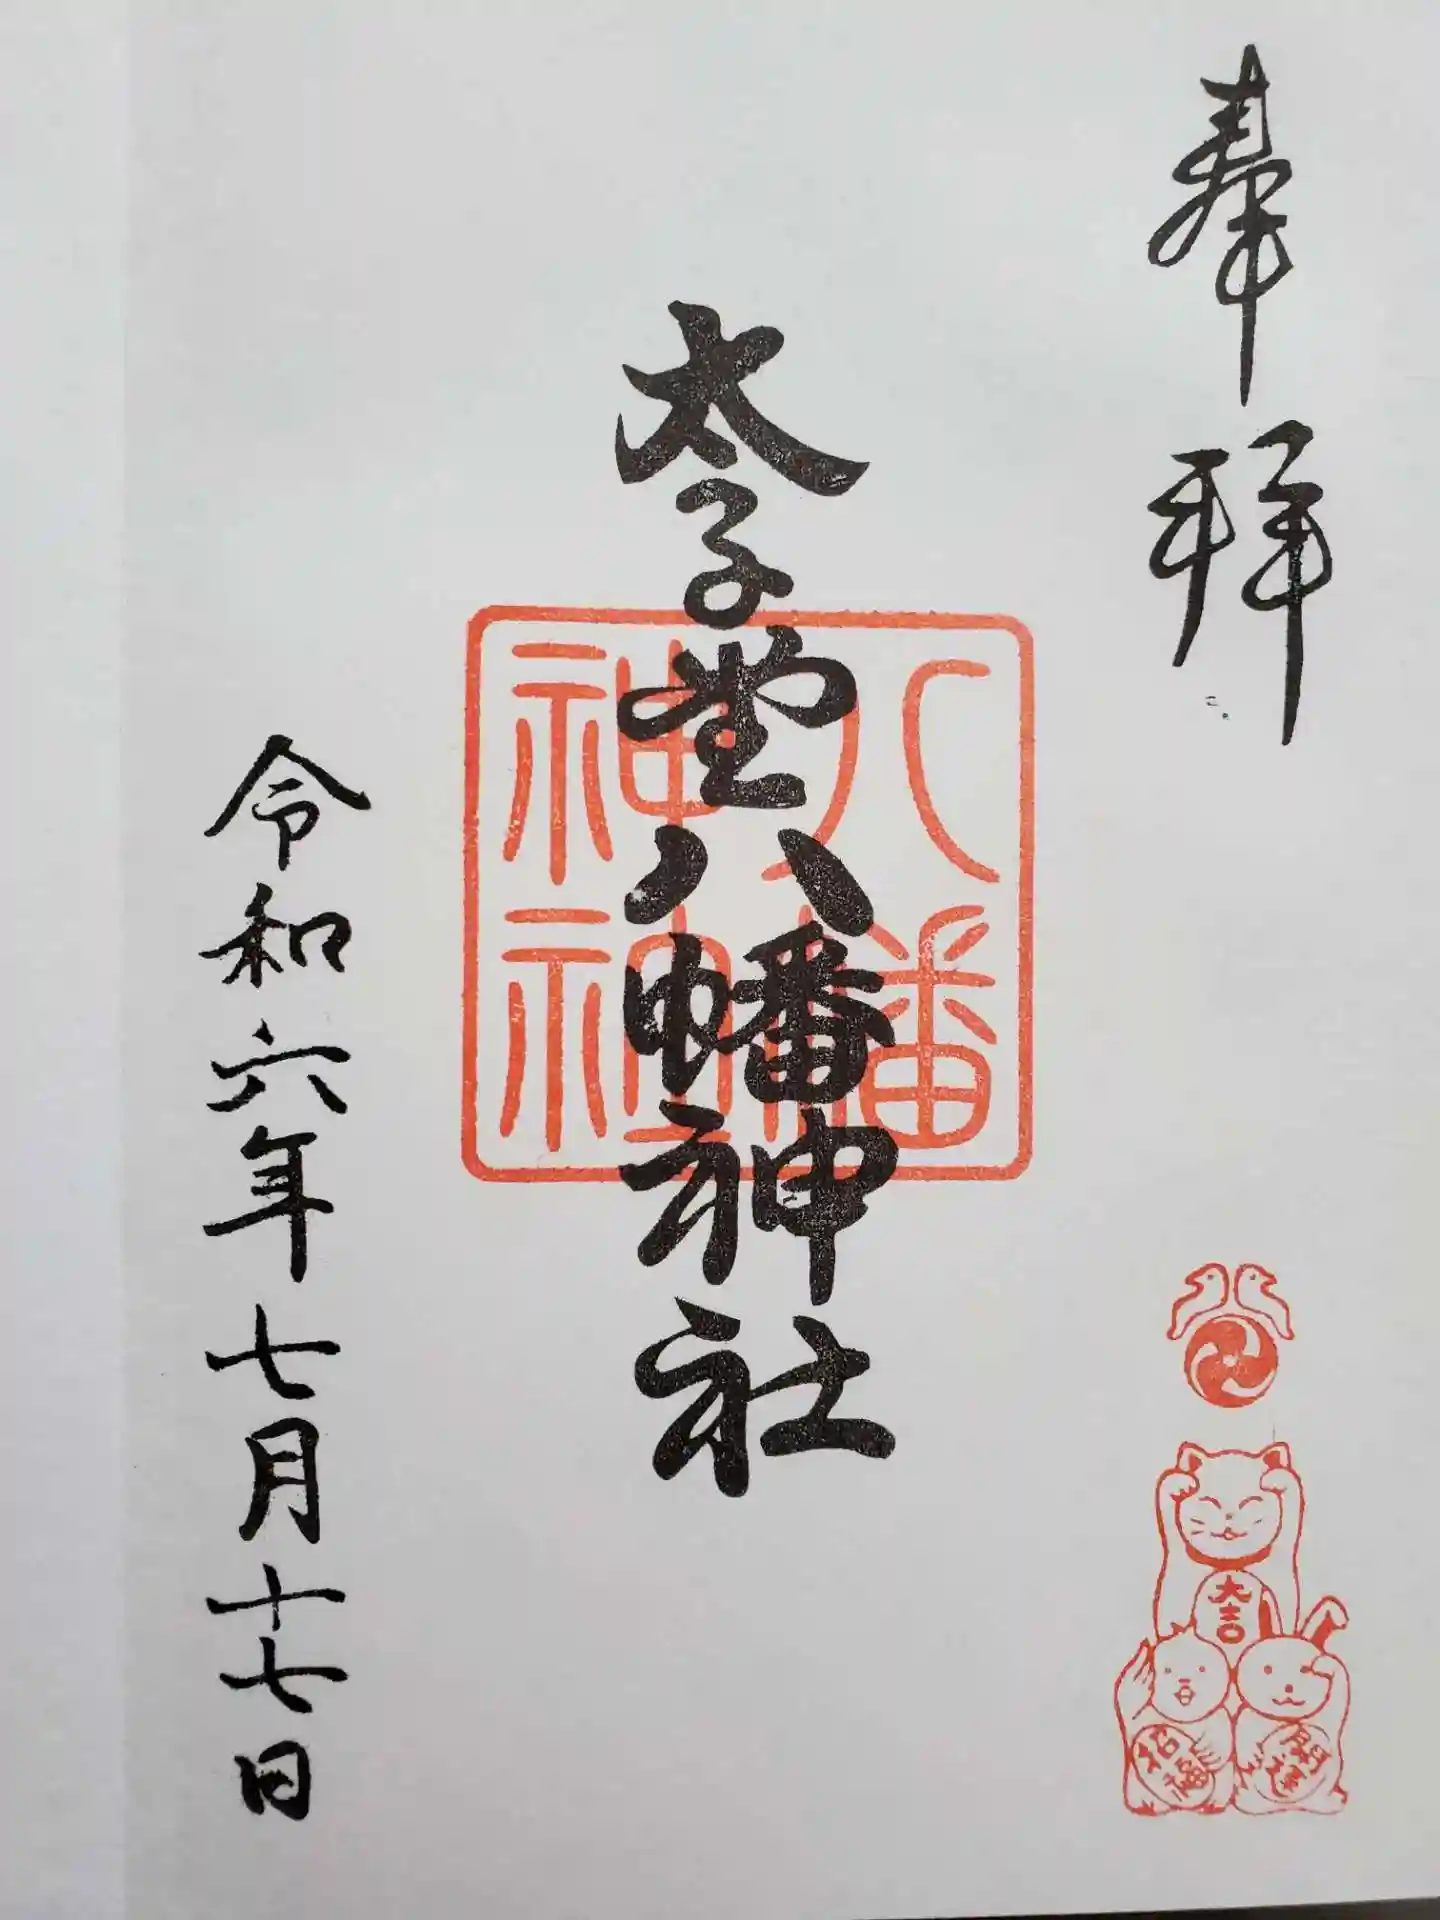 奉拝
太子堂八幡神社
八幡
神社
令和六年七月十七日
大吉
招福
開運